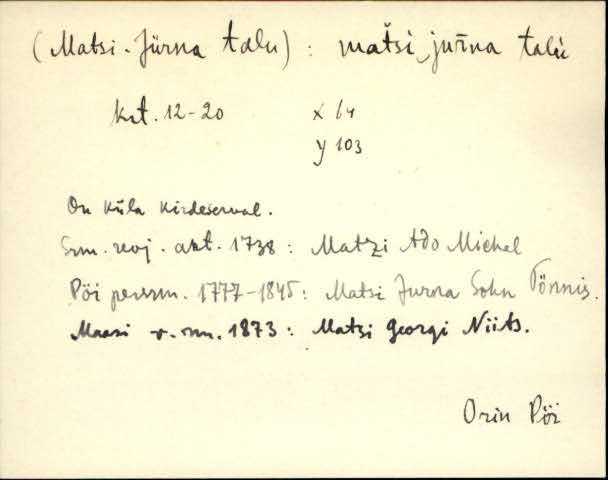 (Matsi-Jürna talu) : matši‿juřna talu
krt. 12-20 x 64
y 103
On küla kirdeserval.
Srm. revj. akt. 1738 : Matzi Ado Michel
Pöi persrm. 1777-1845 : Matsi Jurna Sohn Tönnis.
Maasi v. rmn. 1873 : Matsi Georgi Niits.
Orin Pöi